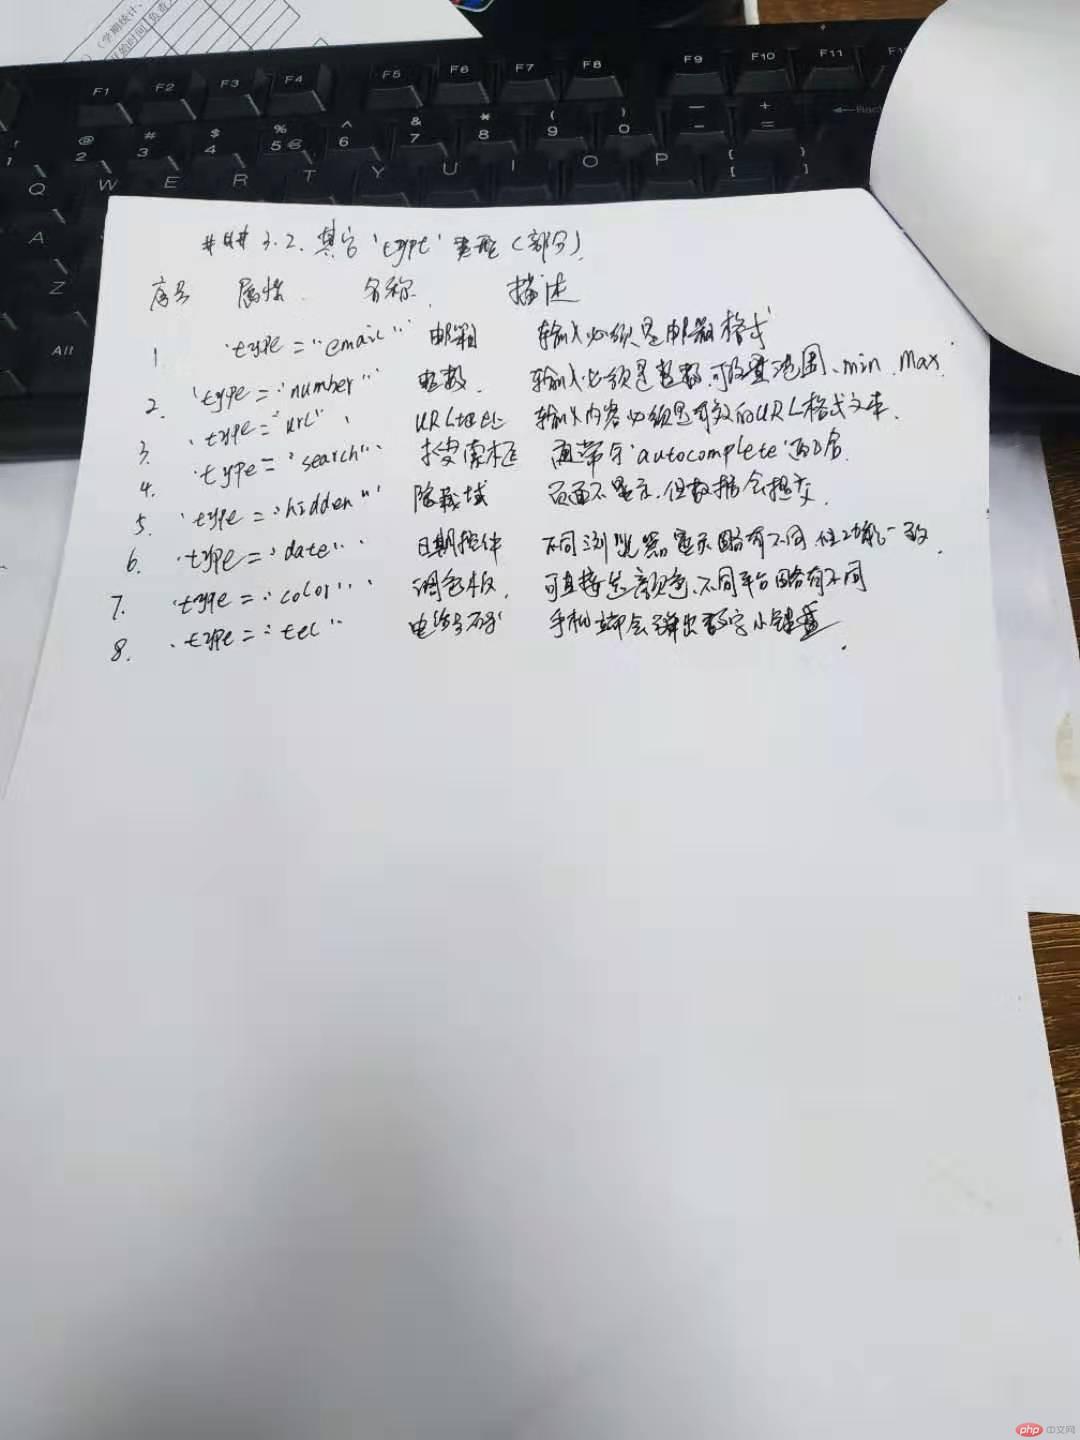 （学期统计、
开始时间 负责人
F1 F2 F3 F4 F5 F6 F7 F8 F9 F10 F11
! 1 @ 2 # 3 $ 4 % 5 € ^ 6 & 7 * 8 ( 9 ) 0 — - + = ←Back
Q W E R T Y U I O P { [ } ]
A
Z
Alt
### 3.2. 其它 `type` 类型（部分）
序号 属性 名称 描述
1 `type="email"` 邮箱 输入必须是邮箱格式
2. `type="number"` 整数 输入必须是整数,可设置范围、min、max
3. `type="url"` URL地址 输入内容必须是有效的URL格式文本.
4. `type="search"` 搜索框 通常与`autocomplete`配合
5. `type="hidden"` 隐藏域 页面不显示,但数据会提交
6. `type="date"` 日期控件 不同浏览器显示略有不同 但功能一致.
7. `type="color"` 调色板. 可直接选颜色、不同平台略有不同
8. `type="tel"` 电话号码 手机端会弹出数字小键盘.
php 中文网